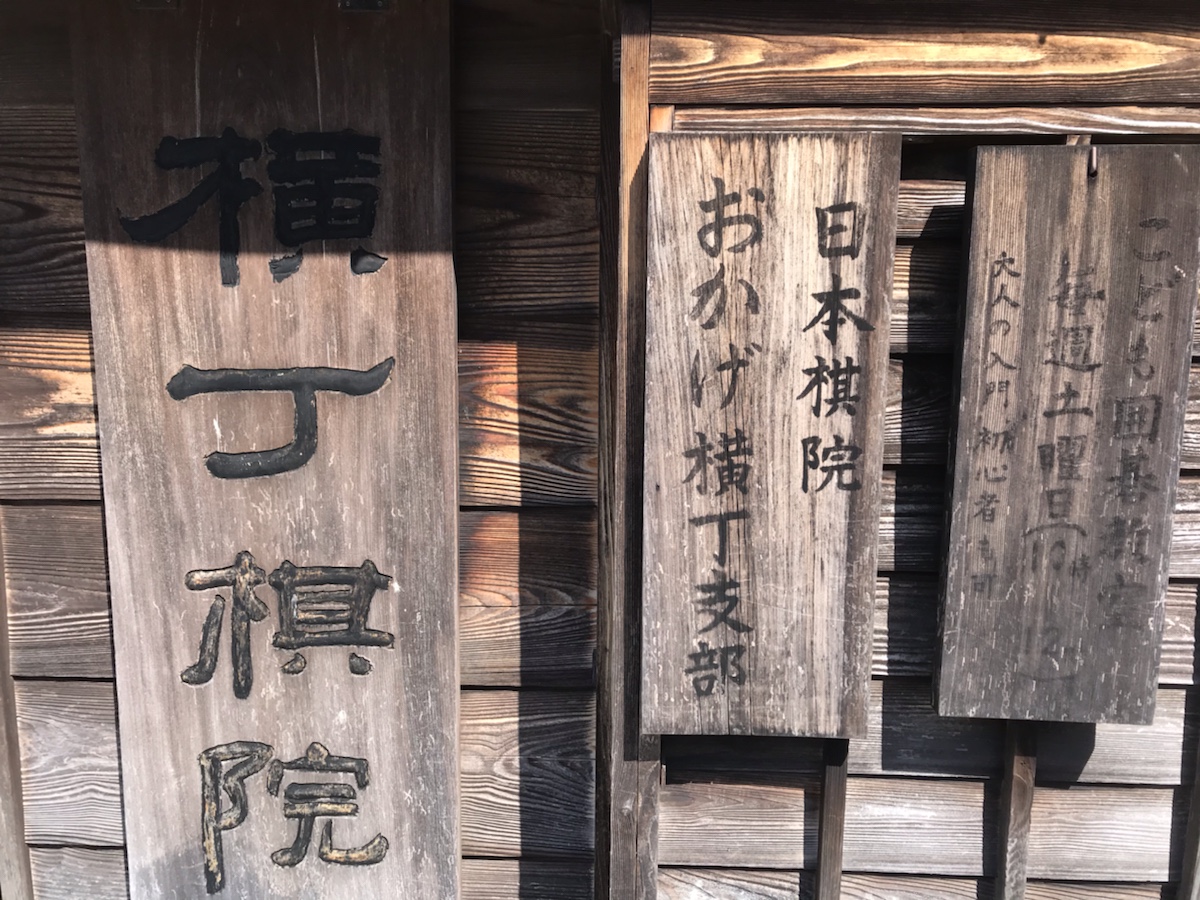 横丁棋院
日本棋院
おかげ横丁支部
こども囲碁教室
毎週土曜日(10時〜12)
大人の入門・初心者も可